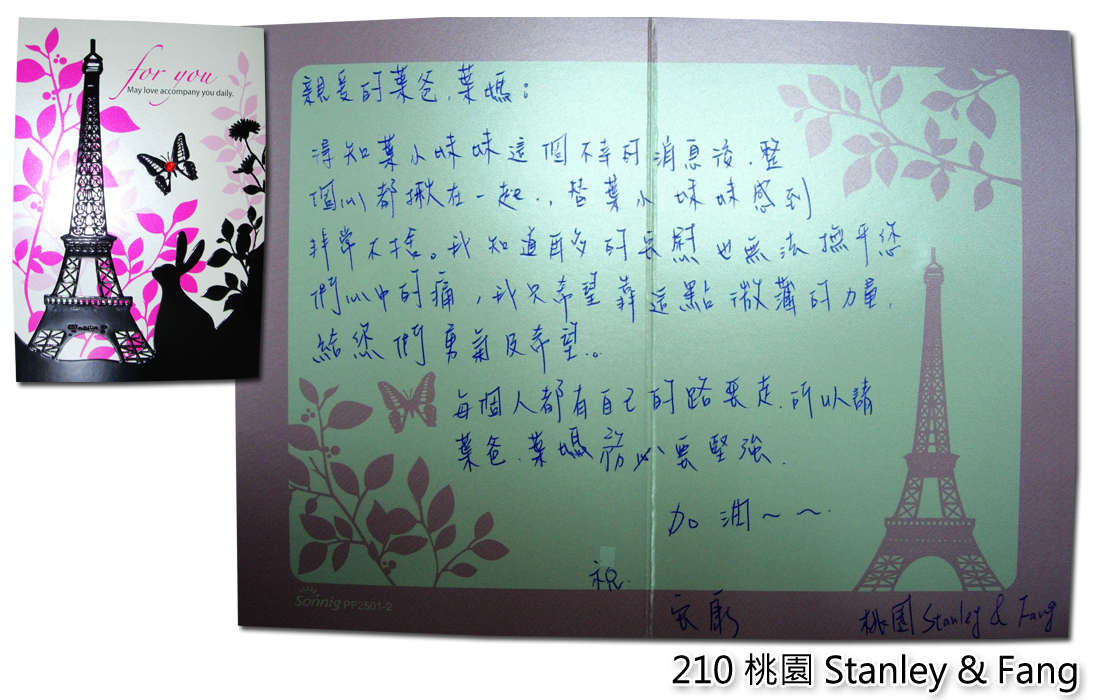 for you
May love accompany you daily.
親爱的葉爸、葉媽：
得知葉小妹妹這個不幸的消息後、整
個心都揪在一起.，替葉小妹妹感到
非常不捨。我知道再多的安慰也無法撫平您
們心中的痛，我只希望藉這點微薄的力量，
給您們勇氣及希望。
每個人都有自己的路要走，所以請
葉爸、葉媽務必要堅強.
加油~~
祝
安康
桃園 Stanley & Fang
Sonnig PF2501-2
210 桃園 Stanley & Fang